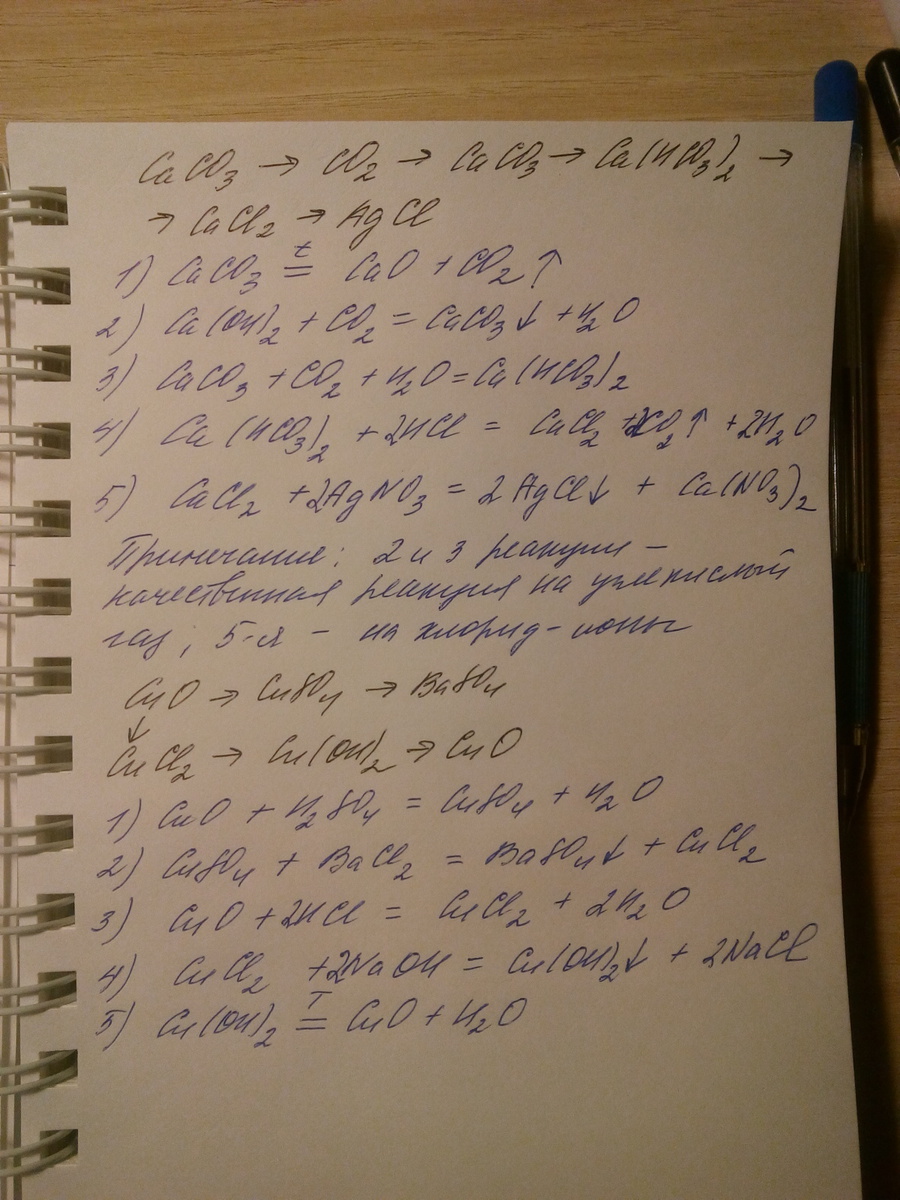 CaCO₃ → CO₂ → CaCO₃ → Ca(HCO₃)₂ →
→ CaCl₂ → AgCl
1) CaCO₃ =ᵗ CaO + CO₂ ↑
2) Ca(OH)₂ + CO₂ = CaCO₃↓ + H₂O
3) CaCO₃ + CO₂ + H₂O = Ca(HCO₃)₂
4) Ca(HCO₃)₂ + 2HCl = CaCl₂ + 2CO₂↑ + 2H₂O
5) CaCl₂ + 2AgNO₃ = 2AgCl↓ + Ca(NO₃)₂
Примечание: 2 и 3 реакции –
качественная реакция на углекислый
газ, 5-я – на хлорид-ионы
CuO → CuSO₄ → BaSO₄
↓
CuCl₂ → Cu(OH)₂ → CuO
1) CuO + H₂SO₄ = CuSO₄ + H₂O
2) CuSO₄ + BaCl₂ = BaSO₄↓ + CuCl₂
3) CuO + 2HCl = CuCl₂ + 2H₂O
4) CuCl₂ + 2NaOH = Cu(OH)₂↓ + 2NaCl
5) Cu(OH)₂ =ᵀ CuO + H₂O